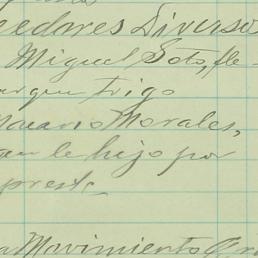 eedores Diverso
Miguel Soto, fle-
ar que trigo
Macario Morales,
que le hizo por
preste
a Movimiento Gr